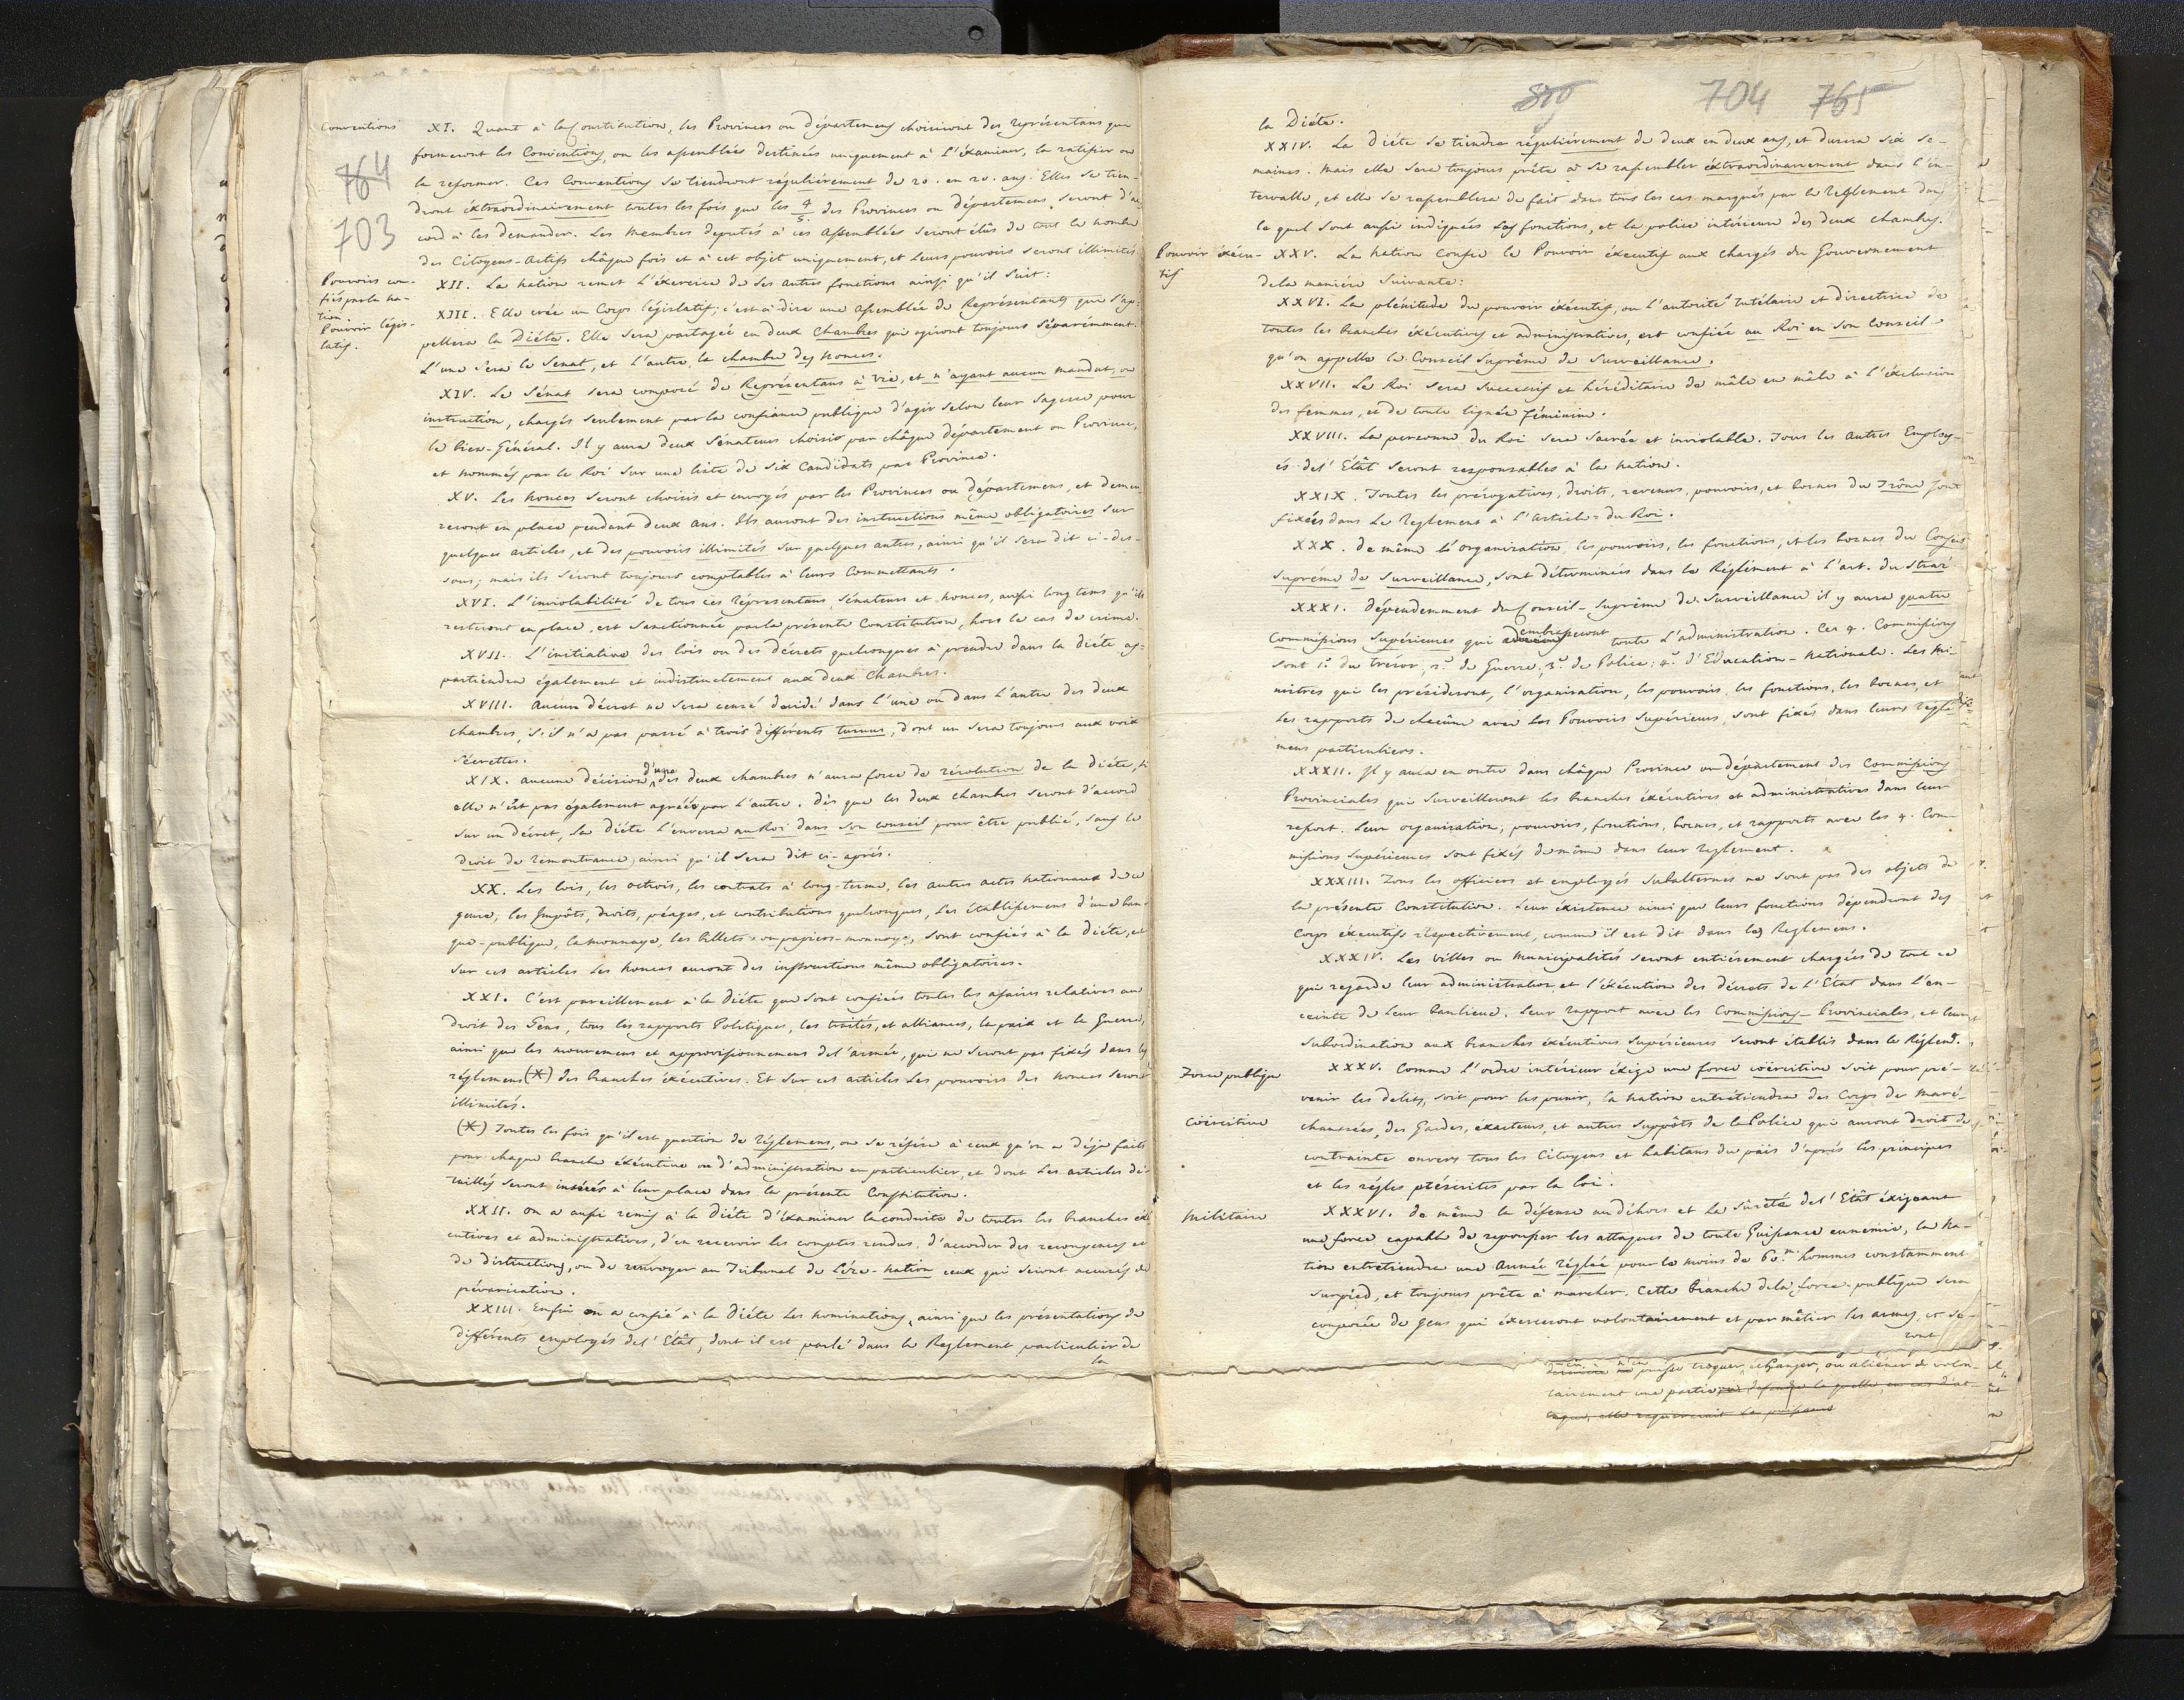 Conventions
764
703
XI. Quant à la Constitution, les Provinces ou départemens choisiront des représentans qui
formeront les Conventions, ou les assemblées destinées uniquement à l'éxaminer, la ratifier ou
la reformer. Ces Conventions se tiendront réguliérement de 20. en 20. ans. Elles se tien-
dront éxtraordinairement toutes les fois que les 4/5. des Provinces ou départemens seront d'ac
cord à les demander. Les membres députés à ces assemblées seront élûs de tout le nombre
des Citoyens-Actifs châque fois et à cet objet uniquement, et leurs pouvoirs seront illimités
Pouvoirs con-
fiés par la na-
tion.
XII. La nation remet l'éxercice de ses autres fonctions ainsi qu'il suit:
Pouvoir légis-
latif.
XIII. Elle crée un Corps législatif; c'est-à-dire une assemblée de Représentans qui s'ap-
pellera la Diéte. Elle sera partagée en deux Chambres qui agiront toujours séparémment.
L'une sera le Senat, et l'autre, la chambre des nonces.
XIV. Le Sénat sera composé de Représentans à vie, et n'ayant aucun mandat, ou
instruction, chargés seulement par la confiance publique d'agir selon leur sagesse pour
le bien-Général. Il y aura deux Sénateurs choisis par châque département ou Province,
et nommés par le Roi sur une liste de six Candidats par Province.
XV. Les nonces seront choisis et envoyés par les Provinces ou départemens, et demeu-
reront en place pendant deux ans. Ils auront des instructions même obligatoires sur
quelques articles, et des pouvoirs illimités sur quelques autres, ainsi qu'il sera dit ci-des-
sous; mais ils seront toujours comptables à leurs Commettants.
XVI. L'inviolabilité de tous ces réprésentans, Sénateurs et nonces, aussi long tems qu'ils
resteront en place, est sanctionnée par la présente Constitution, hors le cas de crime.
XVII. L'initiative des lois ou des décrets quelconques à prendre dans la diéte ap-
partiendra également et indistinctement aux deux Chambres.
XVIII. Aucun décret ne sera censé décidé dans l'une ou dans l'autre des deux
chambres, s'il n'a pas passé à trois différents turnus, dont un sera toujours aux voix
sécrettes.
XIX. aucune décision d'une des deux chambres n'aura force de résolution de la diéte, si
elle n'est pas également agréée par l'autre. Dès que les deux chambres seront d'accord
sur un décret, la diéte l'enverra au Roi dans son conseil pour être publié, sauf le
droit de remontrance, ainsi qu'il sera dit ci-après.
XX. Les lois, les octrois, les contrats à long-terme, les autres actes nationaux de ce
genre; les Impôts, droits, péages, et contributions quelconques, les établissemens d'une ban-
que-publique, la monnaye, les billets ou papiers-monnoye, sont confiés à la diéte, et
sur ces articles les nonces auront des instructions même obligatoires.
XXI. C'est pareillement à la Diéte que sont confiées toutes les afaires relatives au
droit des Gens, tous les rapports Politiques, les traités, et alliances, la paix et la Guerre,
ainsi que les mouvemens et approvisionnemens de l'armée, qui ne seront pas fixés dans les
réglemens (X) des branches éxécutives. Et sur ces articles les pouvoirs des nonces seront
illimités.
(X) Toutes les fois qu'il est question de réglemens, on se réfère à ceux qu'on a déja faits
pour chaque branche éxécutive ou d'administration en particulier, et dont les articles dé-
taillés seront insérés à leur place dans la présente Constitution.
XXII. on a aussi remis à la Diéte d'éxaminer la conduite de toutes les branches éxé
cutives et administratives, d'en recevoir les comptes rendus, d'accorder des recompenses et
de distinctions, ou de renvoyer au Tribunal de Léze-nation ceux qui seront accusés de
prévarication.
XXIII. Enfin on a confié à la Diéte les nominations, ainsi que les présentations de
différents employés de l'Etât, dont il est parlé dans le Reglement particulier de
la
704 765
la Diéte.
XXIV. La Diéte se tiendra réguliérement de deux en deux ans, et durera six se-
maines. Mais elle sera toujours prête à se rassembler éxtraordinairement dans l'in-
tervalle, et elle se rassemblera de fait dans tous les cas marqués par le Reglement dans
le quel sont aussi indiquées les fonctions, et la police intérieure des deux chambres.
Pouvoir éxécu-
tif
XXV. La nation confie le Pouvoir éxécutif aux chargés du Gouvernement
de la maniére suivante:
XXVI. La plénitude du pouvoir éxécutif, ou l'autorité tutélaire et directrice de
toutes les branches éxécutives et administratives, est confiée au Roi en son Conseil
qu'on appelle le Conseil Suprême de Surveillance.
XXVII. Le Roi sera successif et héréditaire de mâle en mâle à l'éxclusion
des femmes, et de toute lignée féminine.
XXVIII. La personne du Roi sera sacrée et inviolable. Tous les autres Employ-
és de l'Etât seront responsables à la nation.
XXIX. Toutes les prérogatives, droits, revenus, pouvoirs, et bornes du Trône sont
fixées dans le Reglement à l'article du Roi.
XXX. De même l'organization, les pouvoirs, les fonctions, et les bornes du Conseil
Suprême de Surveillance, sont déterminées dans le Réglement à l'art. du Straż
XXXI. Dépendemment du Conseil-Suprême de Surveillance il y aura quatre
Commissions Supérieures qui embrasseront toute l'administration. Ces 4. Commissions
sont 1.° du trésor, 2.° de Guerre, 3.° de Police; 4.° d'Education-nationale. Les Mi-
nistres qui les présideront, l'organisation, les pouvoirs, les fonctions, les bornes, et
les rapports de chacune avec les Pouvoirs Supérieurs, sont fixés dans leurs régle-
mens particuliers.
XXXII. Il y aura en outre dans châque Province ou département des Commissions
Provinciales qui surveilleront les branches éxécutives et administratives dans leur
resort. Leur organisation, pouvoirs, fonctions, bornes, et rapports avec les 4. Com-
missions Supérieures sont fixés de même dans leur reglement.
XXXIII. Tous les officiers et employés subalternes ne sont pas des objets de
la présente Constitution. Leur éxistence ainsi que leurs fonctions dépendront des
Corps éxécutifs réspectivement, comme il est dit dans les Reglemens.
XXXIV. Les villes ou municipalités seront entiérement chargées de tout ce
qui regarde leur administration et l'éxécution des décrets de l'Etat dans l'en-
ceinte de leur banlieue. Leur rapport avec les Commissions-Provinciales, et leur
subordination aux branches éxécutives supérieures seront établis dans le Réglem.t
Force publique
XXXV. Comme l'ordre intérieur éxige une force coërcitive soit pour pré-
venir les délits, soit pour les punir, la nation entretiendra des Corps de maré-
Coërcitive
chaussées, des Gardes, éxacteurs, et autres suppôts de la Police qui auront droit de
contrainte envers tous les Citoyens et habitans du païs d'après les principes
et les régles préscrites par la loi.
Militaire
XXXVI. De même la défense au déhors et la sûreté de l'Etât éxigeant
une force capable de repousser les attaques de toute Puissance ennemie, la na-
tion entretiendra une Armée réglée pour le moins de 60.m hommes constamment
sur pied, et toujours prête à marcher. Cette branche de la force-publique sera
composée de gens qui éxerceront volontairement et par métier les armes, et se-
ront
puisse troquer, échanger, ou aliéner de volon-
tairement une partie